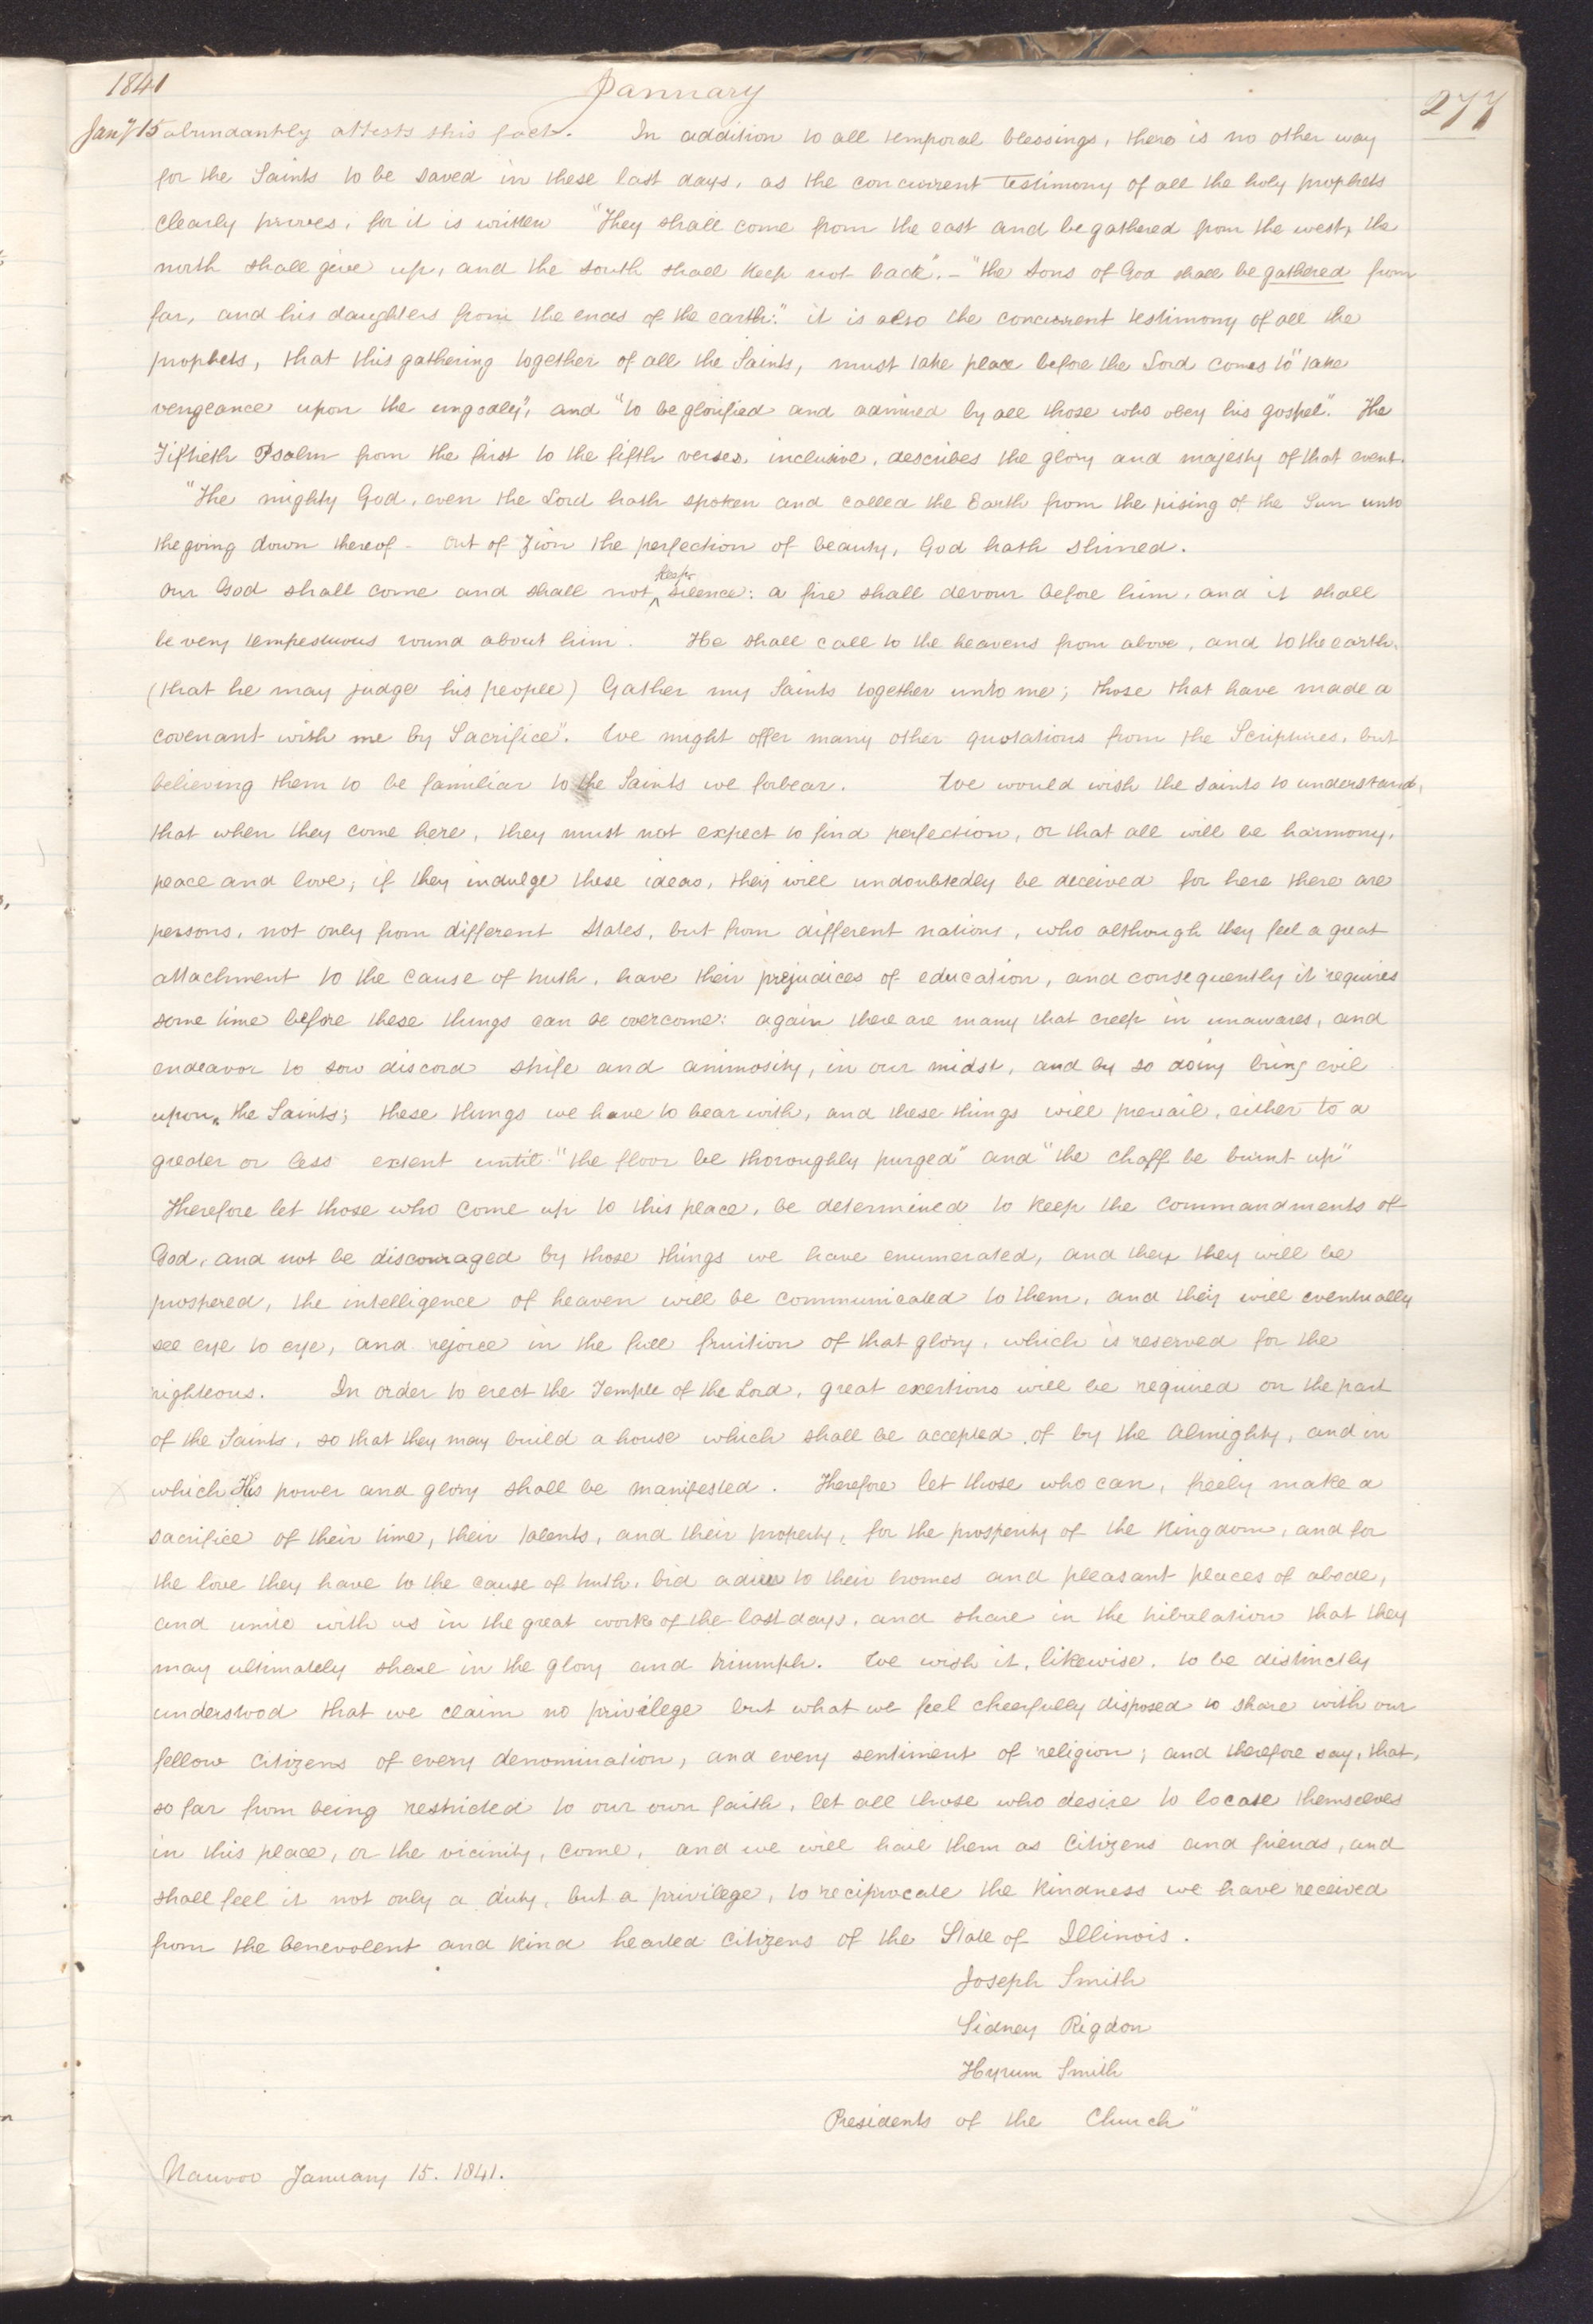 1841 January 277
Jany 15 abundantly attests this fact. In addition to all temporal blessings, there is no other way
for the Saints to be saved in these last days, as the concurrent testimony of all the holy prophets
clearly proves, for it is written "They shall come from the east and be gathered from the west, the
north shall give up, and the south shall keep not back". - "the sons of God shall be gathered from
far, and his daughters from the ends of the earth:" it is also the concurrent testimony of all the
prophets, that this gathering together of all the Saints, must take place before the Lord comes to "take
vengeance upon the ungodly", and "to be glorified and admired by all those who obey his gospel". The
Fiftieth Psalm from the first to the fifth verses, inclusive, describes the glory and majesty of that event.
"The mighty God, even the Lord hath spoken and called the Earth from the rising of the Sun unto
the going down thereof - out of Zion the perfection of beauty, God hath shined.
Our God shall come and shall not keep silence: a fire shall devour before him, and it shall
be very tempestuous round about him. He shall call to the heavens from above, and to the earth,
(that he may judge his people) Gather my Saints together unto me; those that have made a
covenant with me by Sacrifice". We might offer many other quotations from the Scriptures, but
believing them to be familiar to the Saints we forbear. We would wish the saints to understand,
that when they come here, they must not expect to find perfection, or that all will be harmony,
peace and love; if they indulge these ideas, they will undoubtedly be deceived for here there are
persons, not only from different States, but from different nations, who although they feel a great
attachment to the cause of truth, have their prejudices of education, and consequently it requires
some time before these things can be overcome: again there are many that creep in unawares, and
endeavor to sow discord strife and animosity, in our midst, and by so doing bring evil
upon the Saints; these things we have to bear with, and these things will prevail, either to a
greater or less extent until "the floor be thoroughly purged" and "the chaff be burnt up"
Therefore let those who come up to this place, be determined to keep the commandments of
God, and not be discouraged by those things we have enumerated, and then they will be
prospered, the intelligence of heaven will be communicated to them, and they will eventually
see eye to eye, and rejoice in the full fruition of that glory, which is reserved for the
righteous. In order to erect the Temple of the Lord, great exertions will be required on the part
of the Saints, so that they may build a house which shall be accepted of by the Almighty, and in
which His power and glory shall be manifested. Therefore let those who can, freely make a
sacrifice of their time, their talents, and their property, for the prosperity of the Kingdom, and for
the love they have to the cause of truth, bid adieu to their homes and pleasant places of abode,
and unite with us in the great work of the last days, and share in the tribulation that they
may ultimately share in the glory and triumph. We wish it, likewise, to be distinctly
understood that we claim no privilege but what we feel cheerfully disposed to share with our
fellow citizens of every denomination, and every sentiment of religion; and therefore say, that,
so far from being restricted to our own faith, let all those who desire to locate themselves
in this place, or the vicinity, come, and we will hail them as Citizens and friends, and
shall feel it not only a duty, but a privilege, to reciprocate the kindness we have received
from the benevolent and kind hearted citizens of the State of Illinois.
Joseph Smith
Sidney Rigdon
Hyrum Smith
Presidents of the Church"
Nauvoo January 15. 1841.